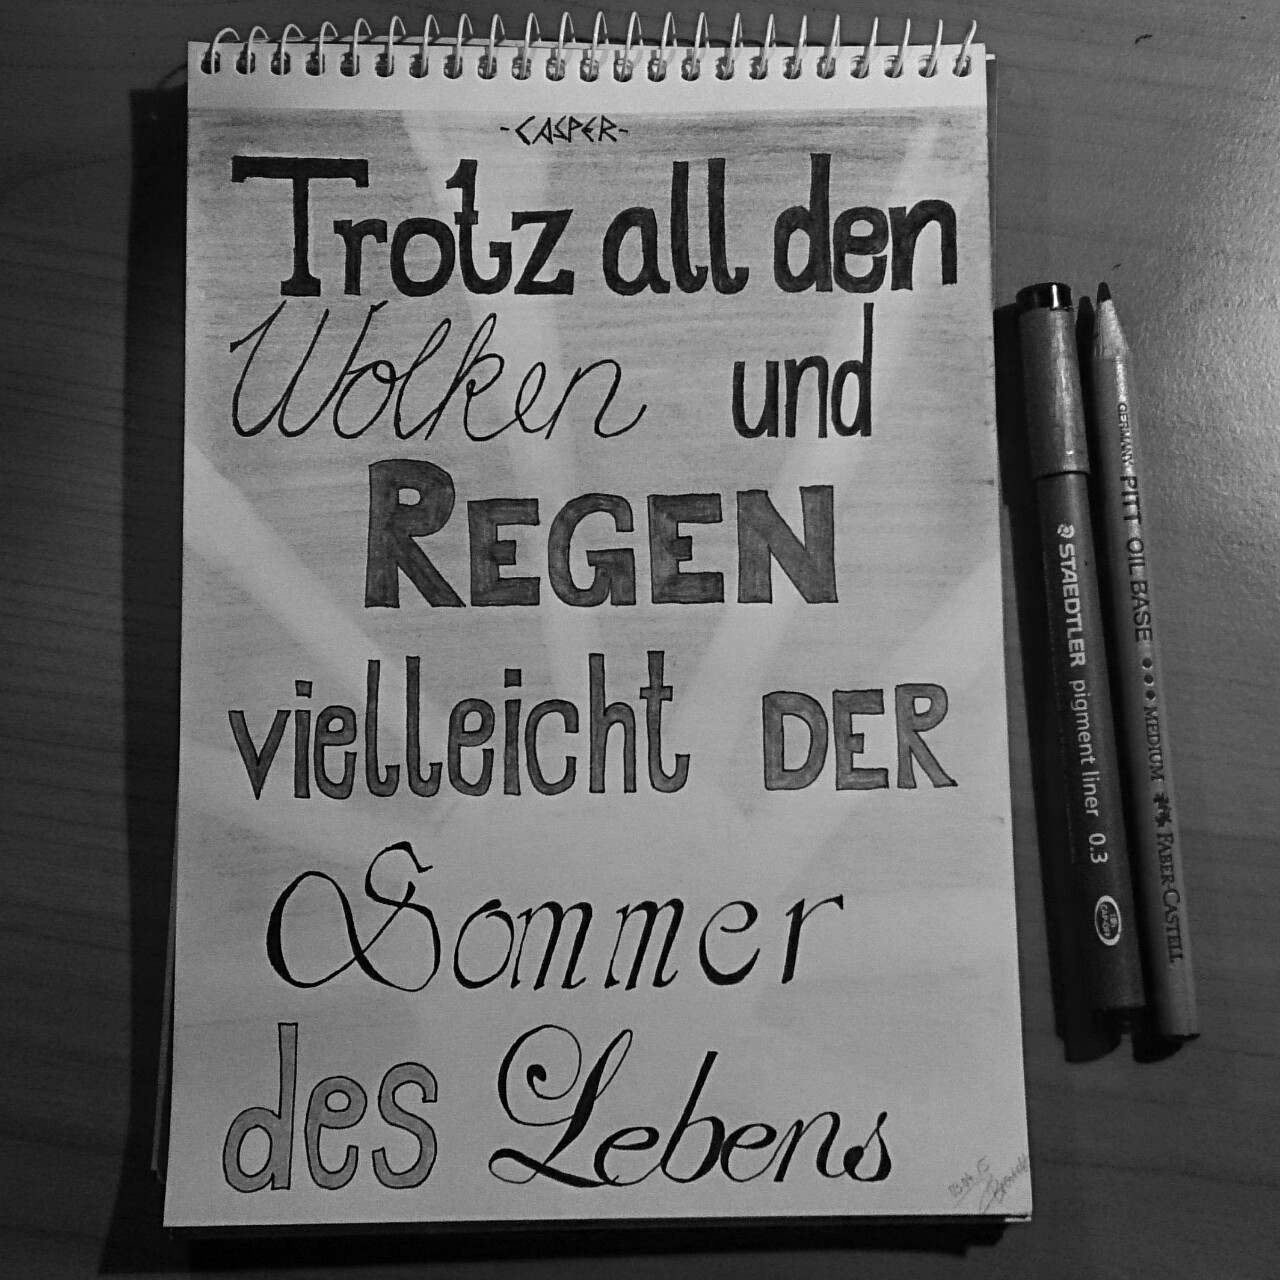 -CASPER-
Trotz all den
Wolken und
REGEN
vielleicht DER
Sommer
des Lebens
03.04.15
STAEDTLER pigment liner 0.3
GERMANY PITT OIL BASE MEDIUM FABER-CASTELL